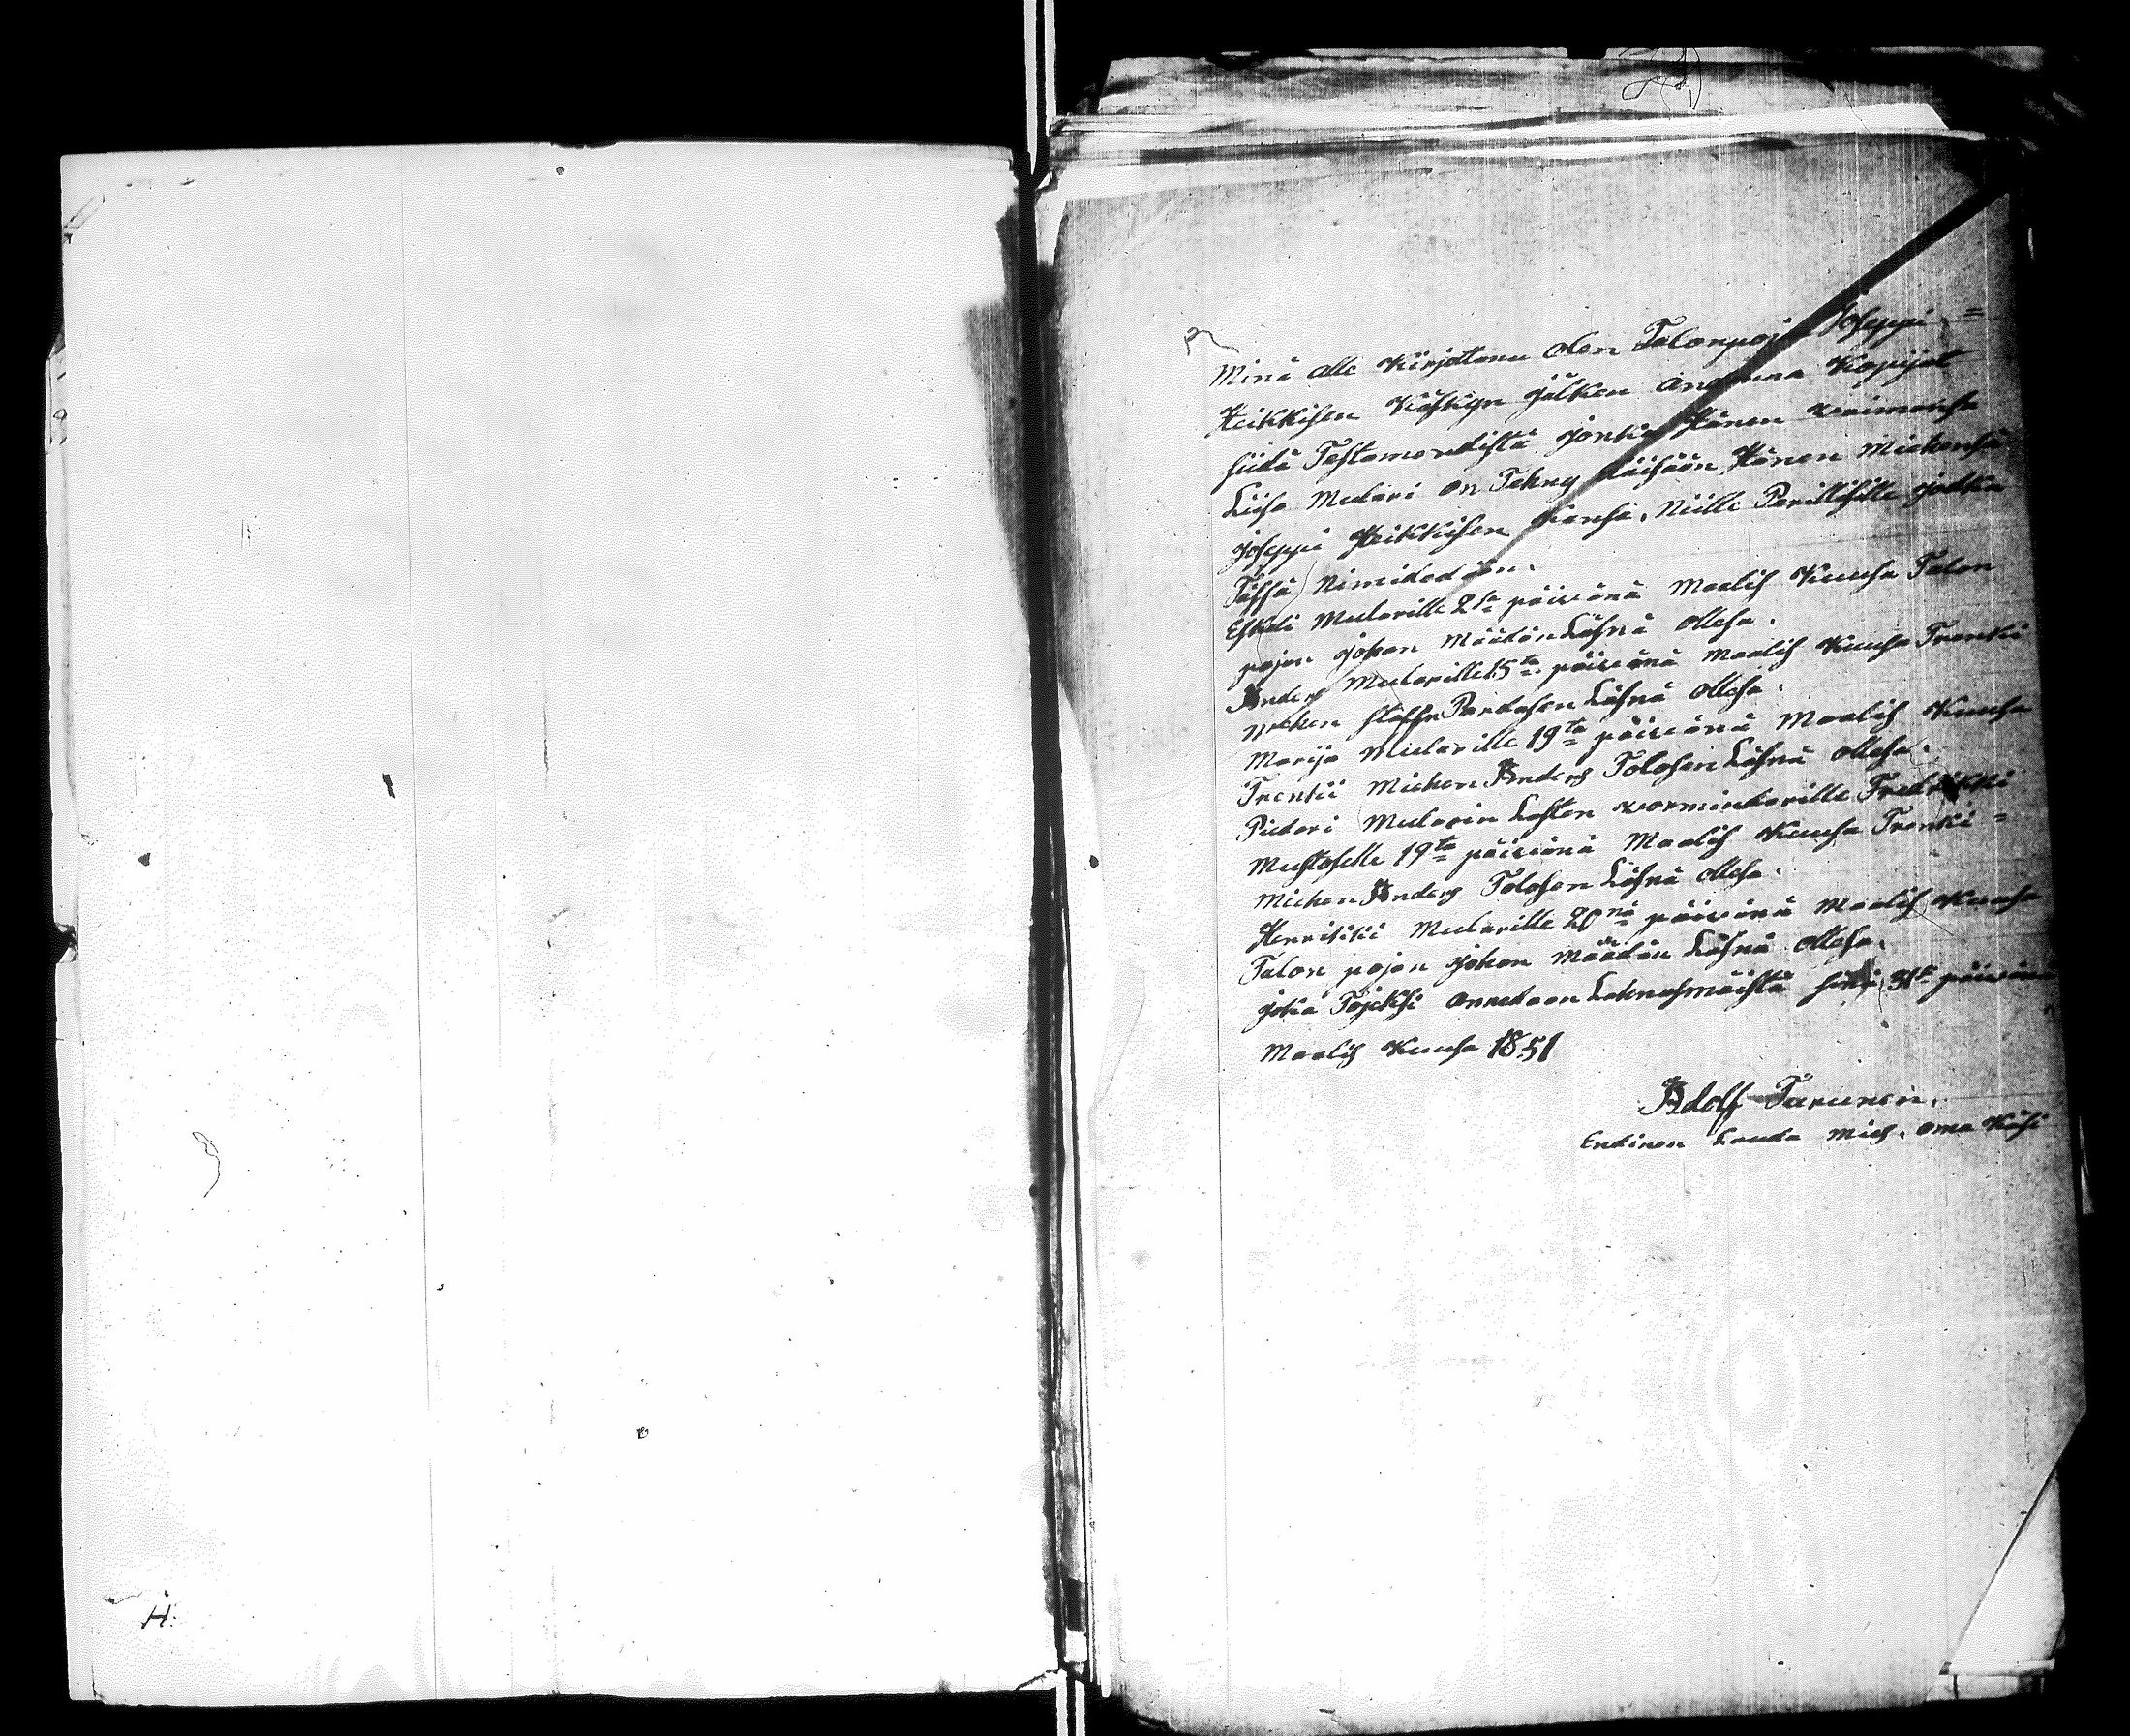 Minä alle Kirjottanu olen Talonpojan Joseppi =
Heikkisen Käskyn jälken andanna Kopijat
siidä Testamendista jonka Hänen waimonsa
Liisa Mulari on Tehny Häisään Hänen Miehensä
joseppi Heikkisen Kansa, Niille Perillisille jotka
Tässä Nimidedään.
Eskeli Mularille 2ta päiwänä Maalis Kuusa Talon
pojan johan Määtän Läsnä ollesa.
Anders Mularille 15ta päiwänä Maalis Kuusa Trenki
Miehen staffa Pardasen Läsnä ollesa.
Marija Mularille 19ta päiwänä Maalis Kuusa
Trenkii Miehen Anders Tolosen Läsnä ollesa.
Piedari Mularin Lasten wormindarille Fredrikki
Mustoselle 19ta päiwänä Maalis Kuusa Trenki =
Miehen Anders Tolosen Läsnä ollesa.
Henrikki Mularille 20nä päiwänä Maalis Kuusa
Talon pojan johan Määtän Läsnä ollesa.
joka Tojeksi annedaan Lahnasmäistä 31tä päiwänä
Maalis Kuusa 1851
Adolf Tarunen.
Endinen Lauda mies. oma Käsi
H.